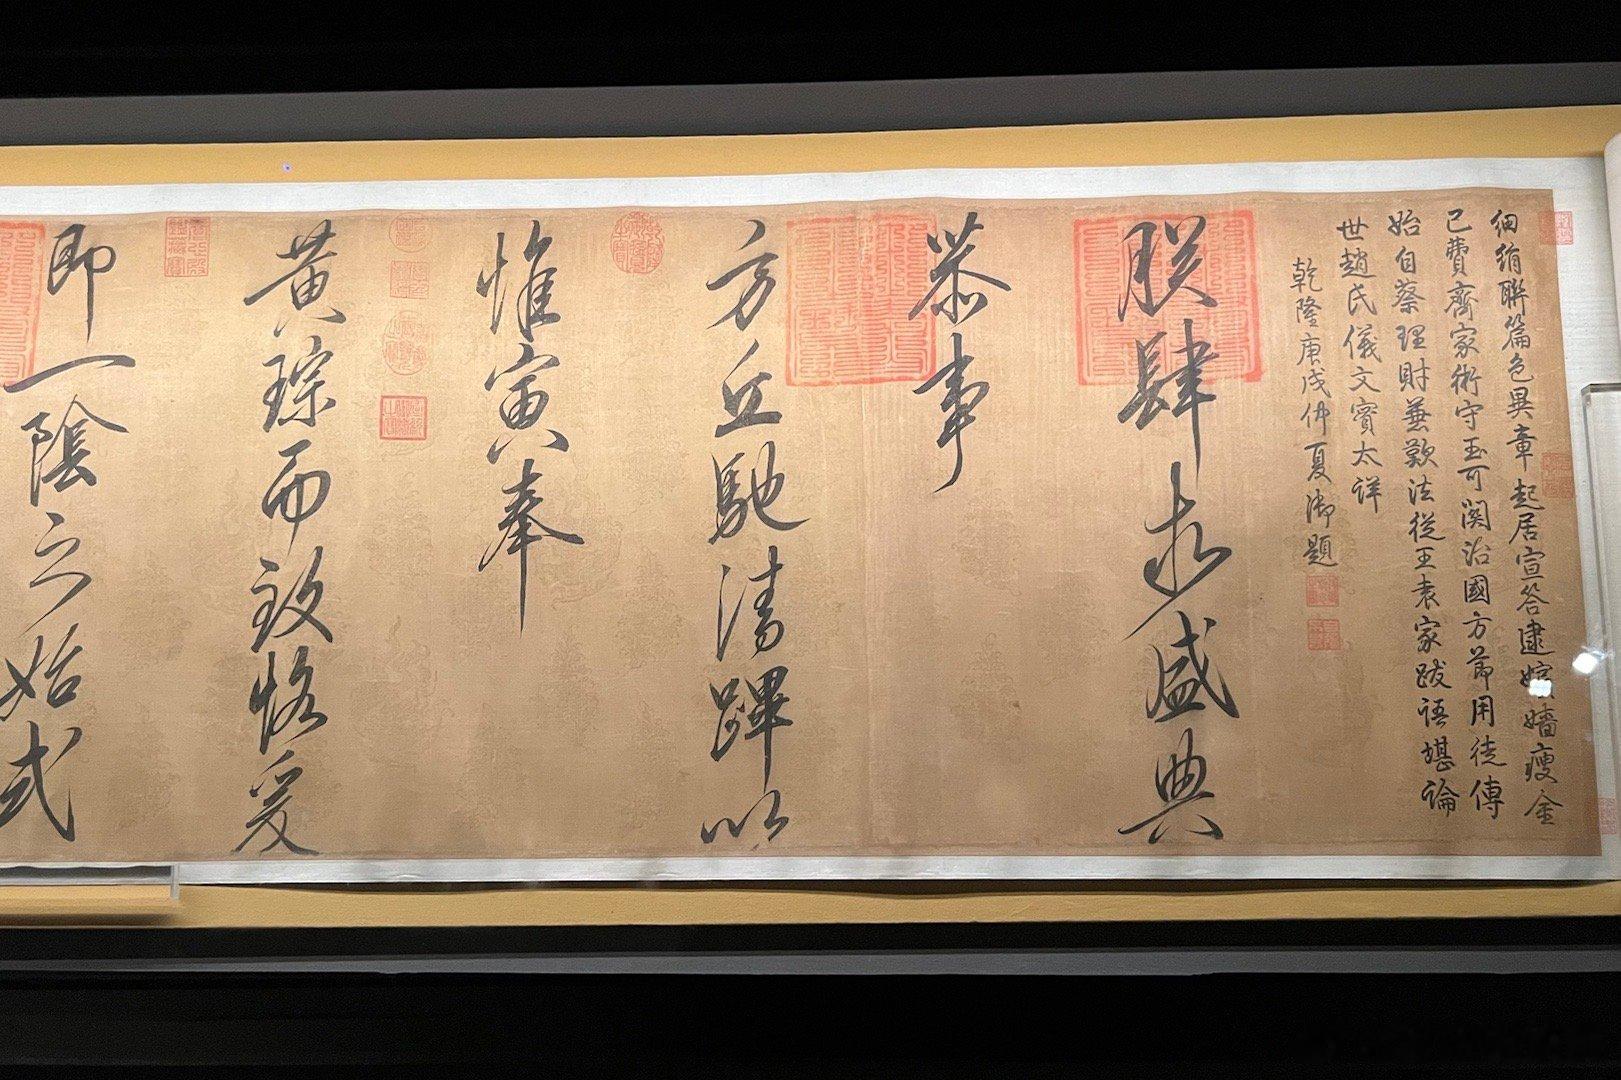 細絹聯篇色異章起居宣答逮嬪嬙瘦金
已費齊家術守玉可關治國方節用徒傳
始自蔡理財兼歎法從王袁家跋語堪論
世趙氏儀文實太詳
乾隆庚戌仲夏御題
朕肆求盛典
恭事
方丘馳清蹕以
惟寅奉
黃琮而致恪爰
即一陰之始式